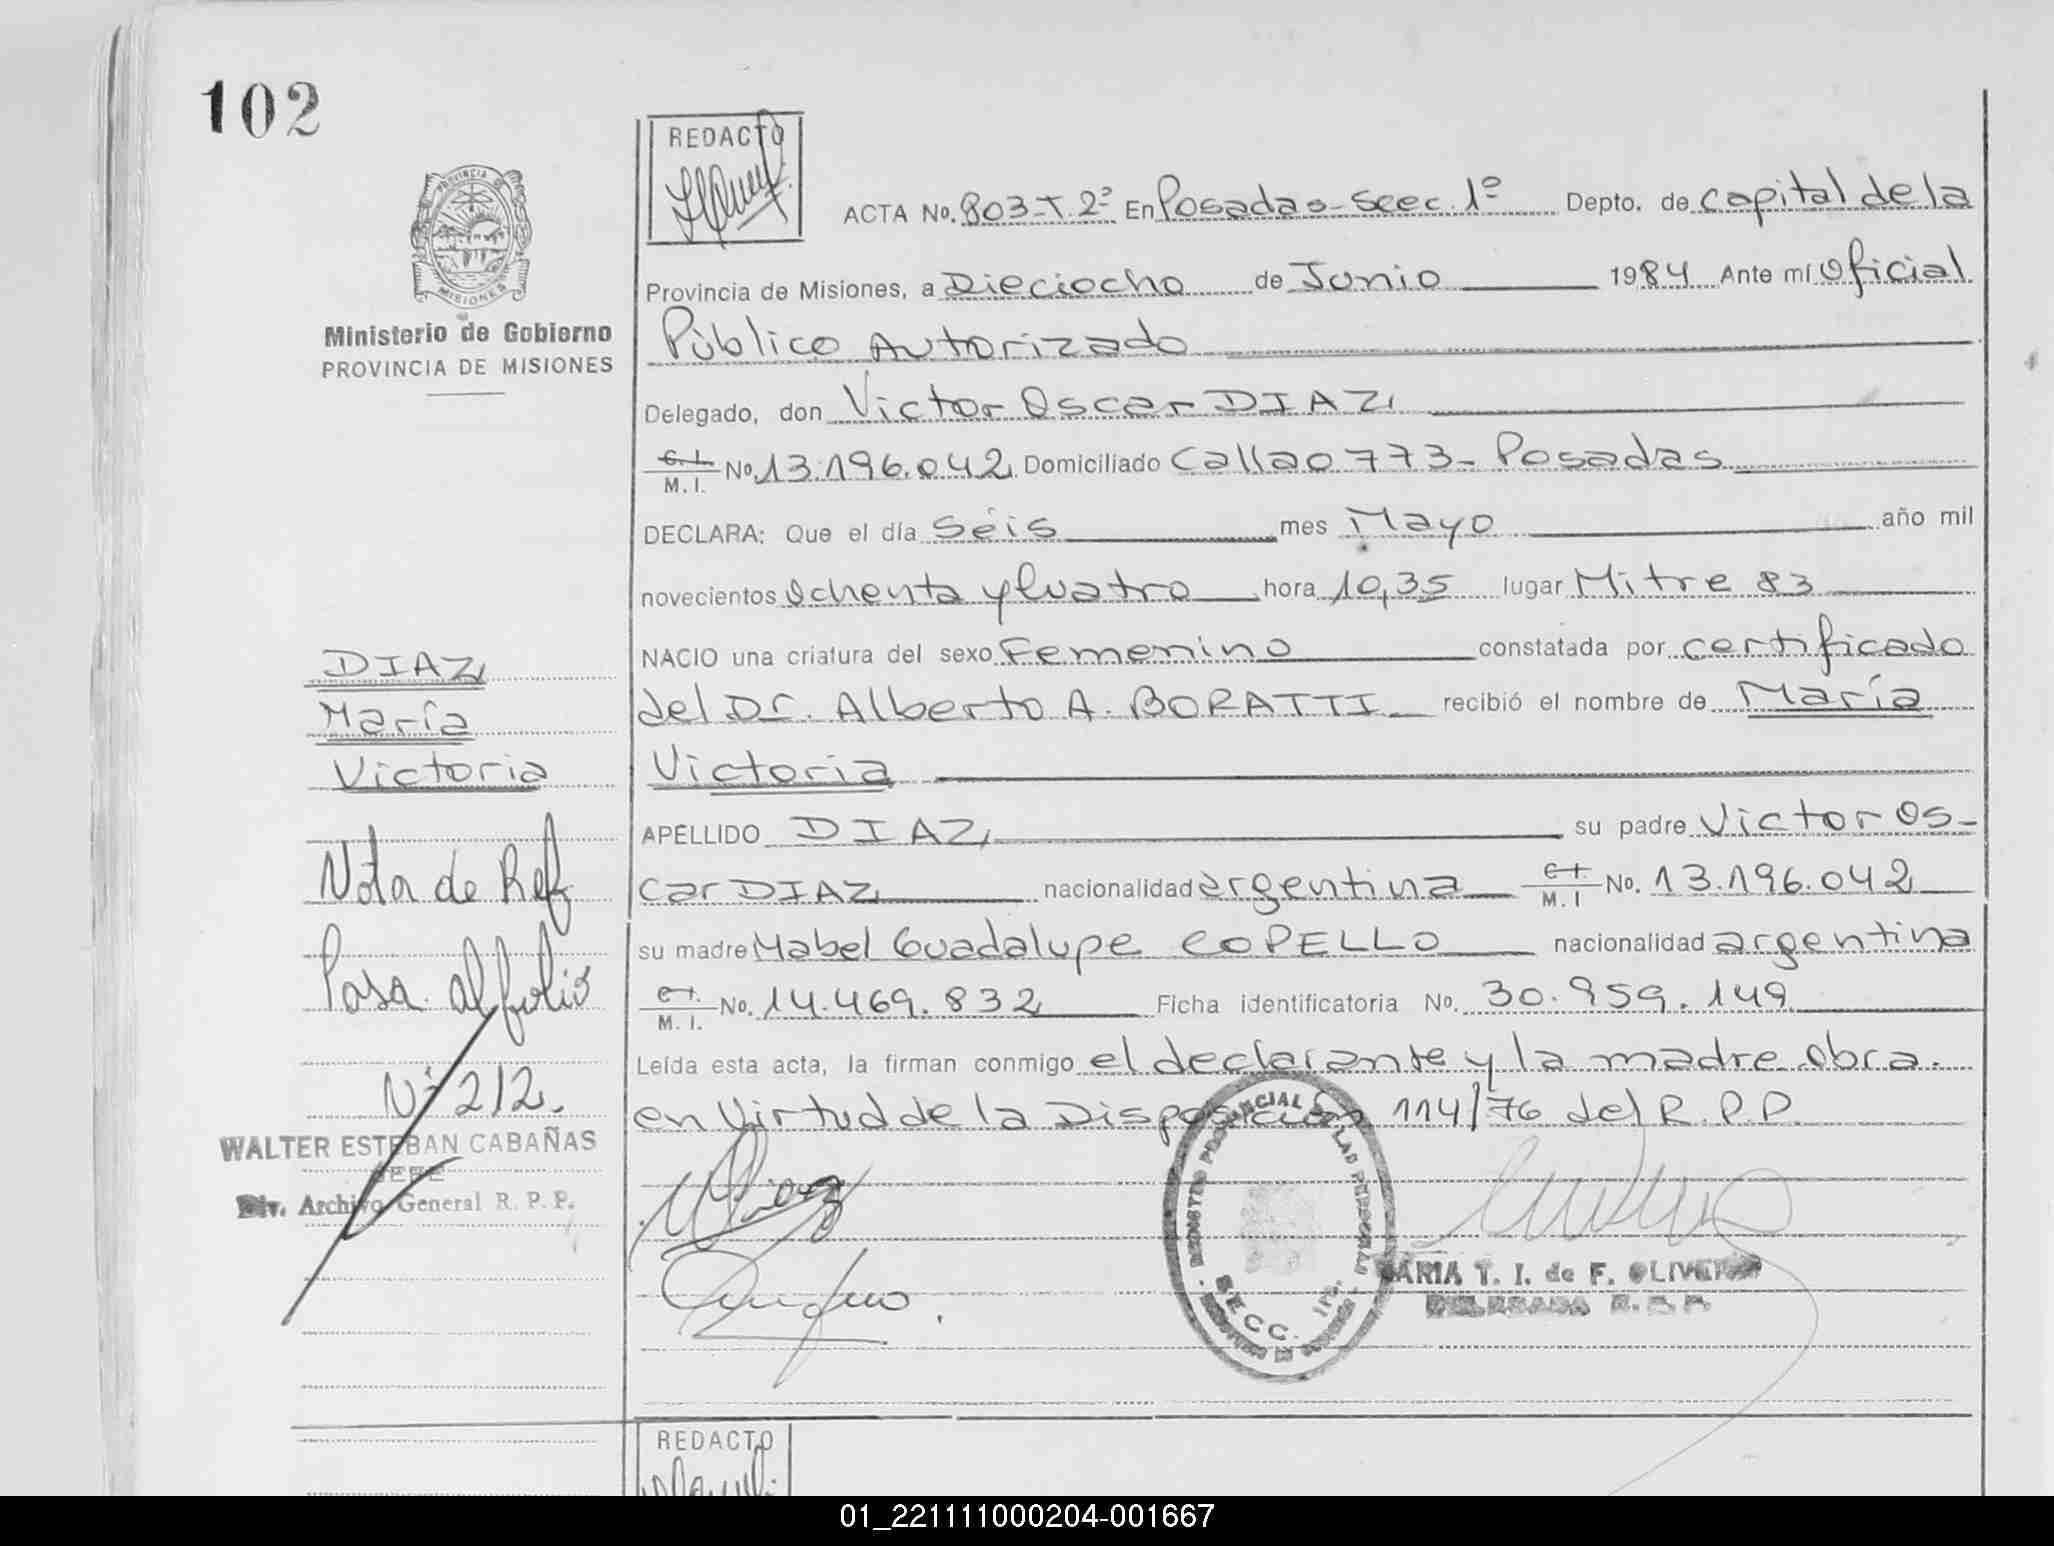 102
REDACTO
PROVINCIA DE
MISIONES
Ministerio de Gobierno
PROVINCIA DE MISIONES
ACTA No. 803-T.2º En Posadas-Secc.1º Depto. de Capital de la
Provincia de Misiones, a Dieciocho de Junio 1984 Ante mí Oficial
Público Autorizado
Delegado, don Victor Oscar DIAZ
C.I. M.I. No. 13.196.042 Domiciliado Callao 773- Posadas
DECLARA: Que el día Séis mes Mayo año mil
novecientos Ochenta y Cuatro hora 10,35 lugar Mitre 83
NACIO una criatura del sexo Femenino constatada por certificado
del Dr. Alberto A. BORATTI recibió el nombre de María
Victoria
APELLIDO DIAZ su padre Victor Os-
car DIAZ nacionalidad argentina C.I. M.I No. 13.196.042
su madre Mabel Guadalupe COPELLO nacionalidad argentina
C.I. M.I. No. 14.469.832 Ficha identificatoria No. 30.959.149
Leída esta acta, la firman conmigo el declarante y la madre. Obra.
en Virtud de la Disposición 114/76 del R.P.P.
DIAZ
María
Victoria
Nota de Ref
Pasa al folio
Nº 212.
WALTER ESTEBAN CABAÑAS
JEFE
Div. Archivo General R. P. P.
REGISTRO PROVINCIAL DE LAS PERSONAS
SECC. 1ra.
MARIA T. I. de F. OLIVERA
DELEGADA R.P.P.
REDACTO
01_221111000204-001667